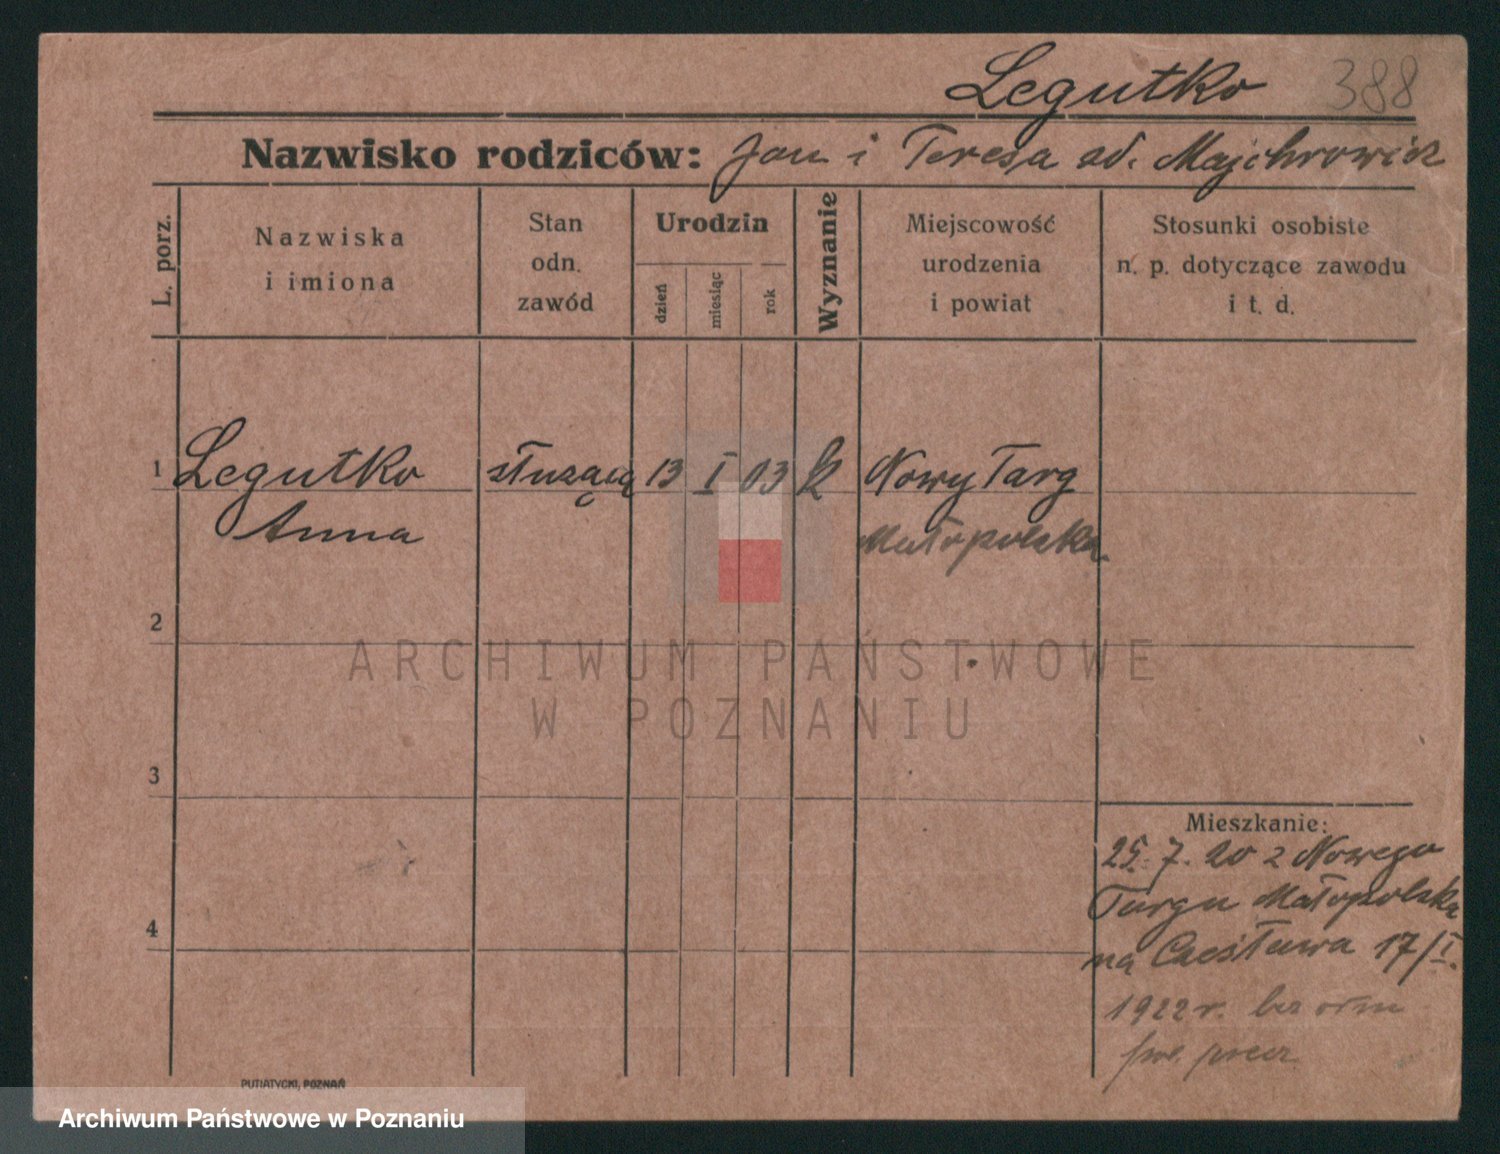 Legutko 388
Nazwisko rodziców: Jan i Teresa od. Majchrowicz
L. porz.
Nazwiska
i imiona
Stan
odn.
zawód
Urodzin
dzień
miesiąc
rok
Wyznanie
Miejscowość
urodzenia
i powiat
Stosunki osobiste
n. p. dotyczące zawodu
i t. d.
1 Legutko służącą 13 I 03 k Nowy Targ
Anna Małopolska
2
ARCHIWUM PAŃSTWOWE
W POZNANIU
3
Mieszkanie:
25. 7. 20 z Nowego
Targu Małopolska
4
na Czesława 17/I.
1922 r. bez
PUTIATYCKI, POZNAŃ
Archiwum Państwowe w Poznaniu